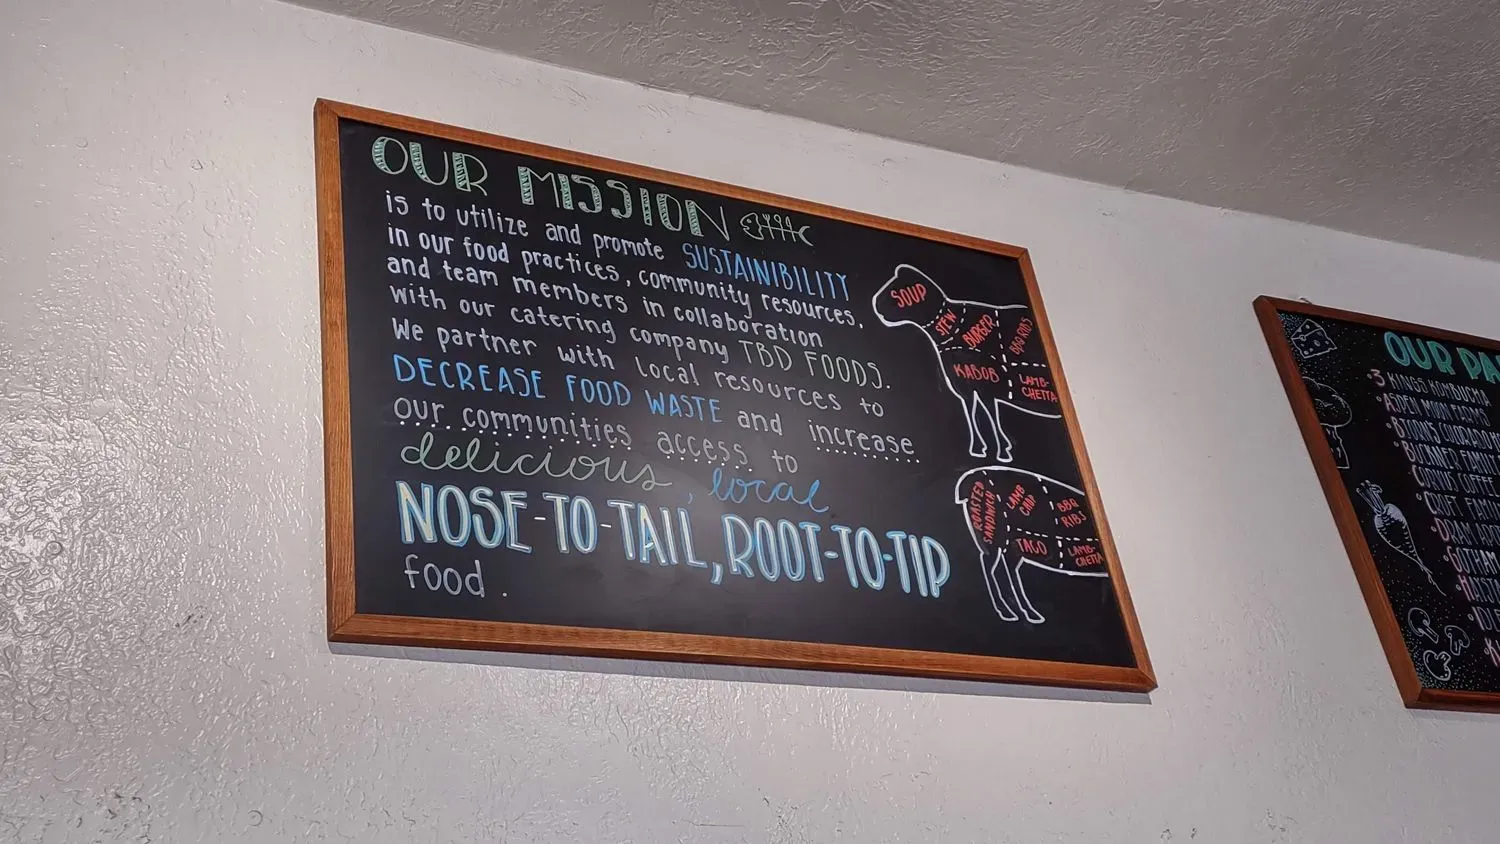 OUR MISSION
is to utilize and promote SUSTAINIBILITY
in our food practices, community resources,
and team members in collaboration
with our catering company TBD FOODS.
We partner with local resources to
DECREASE FOOD WASTE and increase
our communities access to
delicious, local
NOSE-TO-TAIL, ROOT-TO-TIP
food.
SOUP
STEW
BURGER
BBQ RIBS
KABOB
LAMB-
CHETTA
ROASTED
SANDWICH
LAMB
CHOP
BBQ
RIBS
TACO
LAMB-
CHETTA
OUR PA
3 KINGS KOMBUCHA
ASPEN MOON FARMS